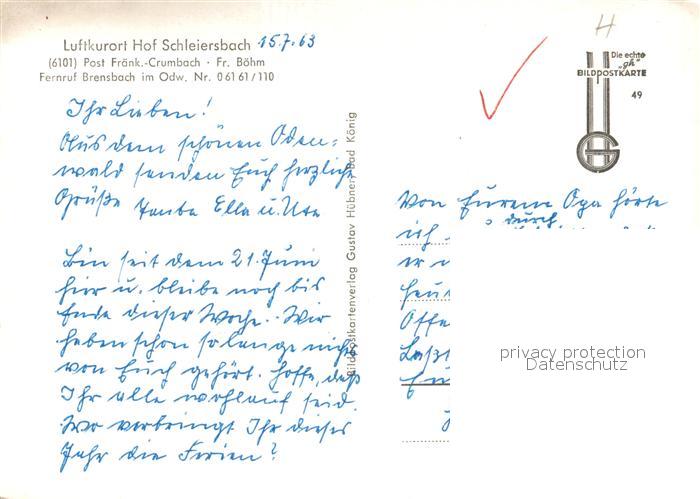 Luftkurort Hof Schleiersbach 15.7.63
(6101) Post Fränk.-Crumbach · Fr. Böhm
Fernruf Brensbach im Odw. Nr. 06161/110
Ihr Lieben!
Aus dem schönen Oden=
wald senden Euch herzliche
Grüße Tante Ella u. Ute
Bin seit dem 21. Juni
hier u. bleibe noch bis
Ende dieser Woche. Wir
haben schon so lange nichts
von Euch gehört. Hoffe, daß
Ihr alle wohlauf seid.
Wo verbringt Ihr dieses
Jahr die Ferien?
Bildpostkartenverlag Gustav Hübner, Bad König
H
Die echte
"gh"
BILDPOSTKARTE
49
GH
Von Eurem Opa hörte
ich durch
er
heu
Offe
Laßt
privacy protection
Datenschutz